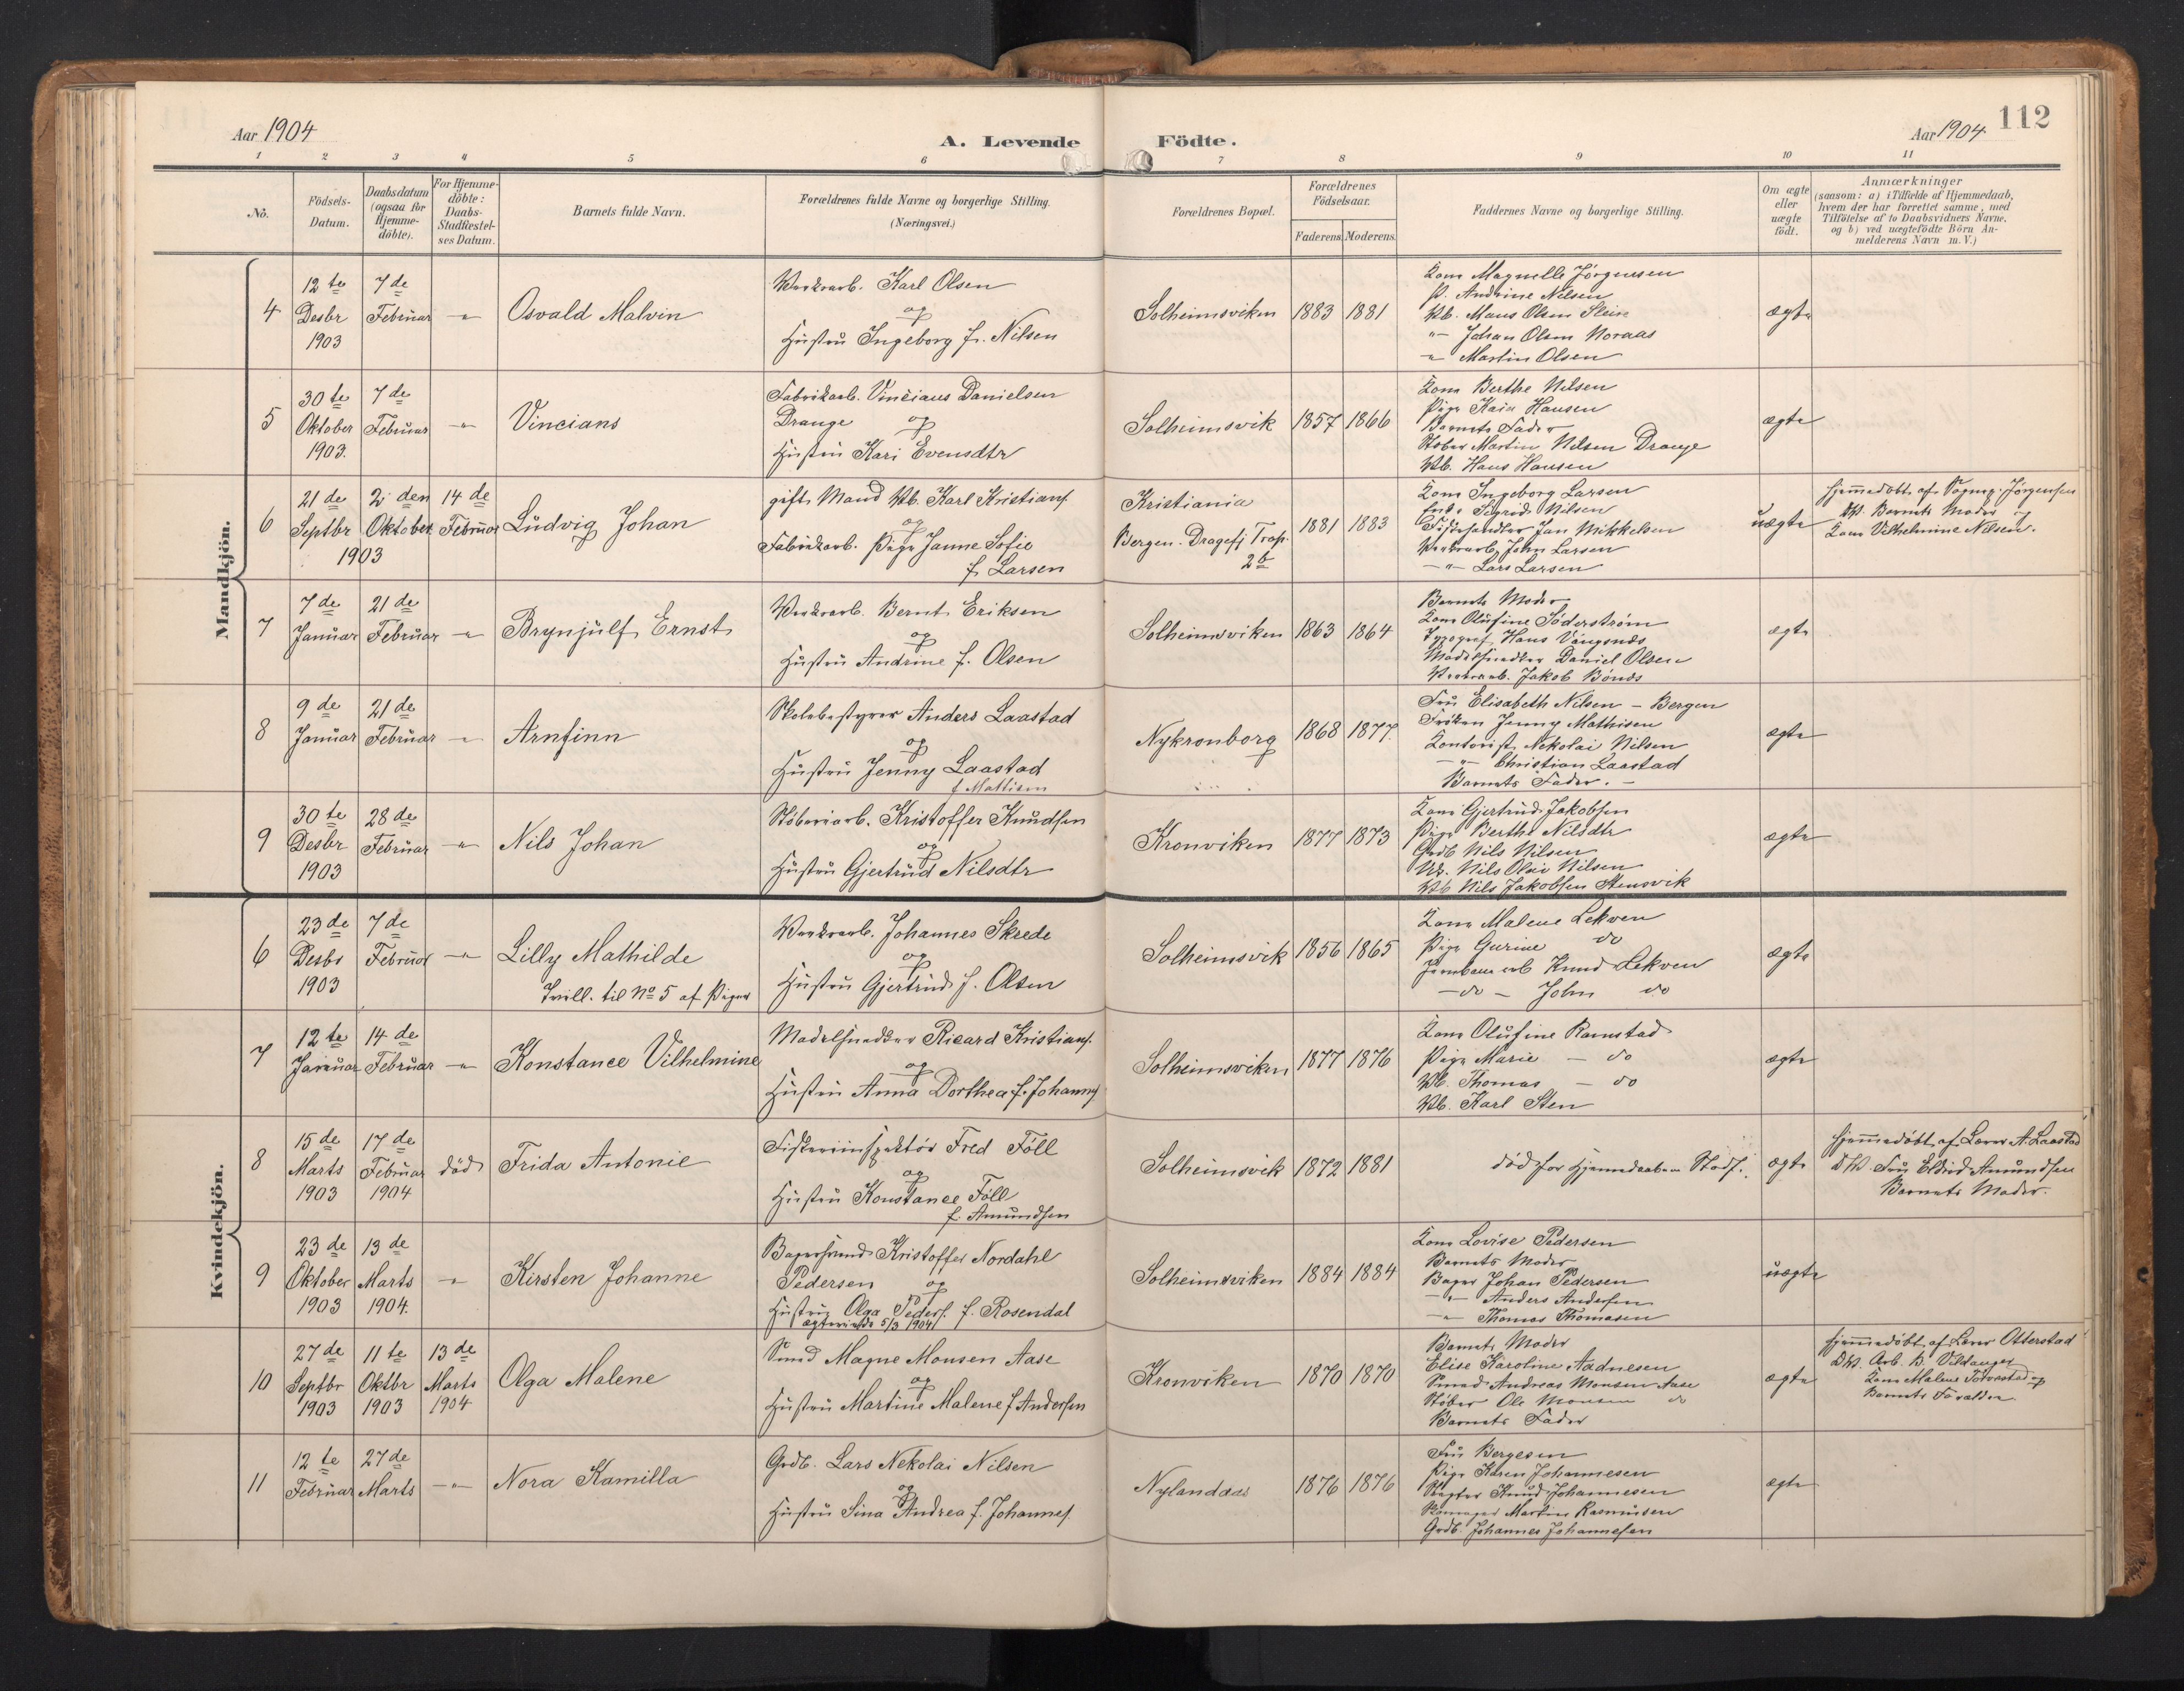 112
Aar 1904
A. Levende Födte.
Aar 1904
1 2 3 4 5 6 7 8 9 10 11
No.
Födsels-Datum.
Daabsdatum (ogsaa for Hjemme-döbte).
For Hjemme-döbte: Daabs-Stadfæstel-ses Datum.
Barnets fulde Navn.
Forældrenes fulde Navne og borgerlige Stilling. (Næringsvei.)
Forældrenes Bopæl.
Forældrenes Födselsaar.
Faderens Moderens
Faddernes Navne og borgerlige Stilling.
Om ægte eller uægte födt.
Anmærkninger
(saasom: a) i Tilfælde af Hjemmedaab,
hvem der har forrettet samme, med
Tilföielse af to Daabsvidners Navne.
og b) ved uægtefödte Börn An-
melderens Navn m. V.)
Mandkjön.
4
12te Desbr 1903
7de Februar
Osvald Malvin
Verksarb. Karl Olsen
og
Hustru Ingeborg f. Nilsen
Solheimsviken
1883 1881
Kone Magnelle Jörgensen
P. Andrine Nilsen
Vb. Mans Olsen Stein
-"- Johan Olsen Noraas
-"- Martin Olsen
ægte
5
30te Oktober 1903.
7de Februar
Vincians
Fabrikarb. Vincians Danielsen
Drange og
Hustru Kari Evensdtr
Solheimsvik
1857 1866
Kone Berthe Nilsen
Pige Kaia Hansen
Barnets Fader
Stöber Martin Nilsen Drange
Vb. Hans Hansen
ægte
6
21de Septbr 1903
2den Oktober
14de Februar
Ludvig Johan
gift Mand Vb. Karl Kristians.
og
Fabrikarb. Pige Janne Sofie
f. Larsen
Kristiania
Bergen. Dragesj Trap. 2b
1881 1883
Kone Ingeborg Larsen
Enke Sigrid Nilsen
Fiskehandler Jan Mikkelsen
Verksarb. John Larsen
-"- Lars Larsen
uægte
Hjemmedöbt af Sognep. Jörgensen
DV. Barnets Moder
Kone Vilhelmine Nilsen.
7
7de Januar
21de Februar
Brynjulf Ernst
Verksarb. Bernt Eriksen
og
Hustru Andrine f. Olsen
Solheimsviken
1863 1864
Barnets Moder
Kone Olufine Söderström
Typograf Hans Vangsnes
Modelsnedker Daniel Olsen
Verksarb. Jakob Bönes
ægte
8
9de Januar
21de Februar
Arnfinn
Skolebestyrer Anders Laastad
og
Hustru Jenny Laastad
f. Mattisen
Nykronborg
1868 1877.
Fru Elisabeth Nilsen - Bergen
Fröken Jenny Mathisen
Kontorist Nekolai Nilsen
-"- Christian Laastad
Barnets Fader. -
ægte
9
30te Desbr 1903
28de Februar
Nils Johan
Stöberiarb. Kristoffer Knudsen
og
Hustru Gjertrud Nilsdtr
Kronviken
1877 1873
Kone Gjertrud Jakobsen
Pige Berthe Nilsdtr
Grdb Nils Nilsen
Uk. Nils Olai Nilsen
Vb Nils Jakobsen Stensvik
ægte
Kvindekjön.
6
23de Desbr 1903
7de Februar
Lilly Mathilde
Tvill. til No 5 af Piger
Verksarb. Johannes Skrede
og
Hustru Gjertrud f. Olsen
Solheimsvik
1856 1865
Kone Malene Lekven
Pige Gurine do
Jernbanearb Knud Lekven
-do- John do
ægte
7
12te Januar
14de Februar
Konstance Vilhelmine
Modelsnedker Ricard Kristians.
og
Hustru Anna Dorthea f. Johanns.
Solheimsviken
1877 1876
Kone Olufine Ramstad
Pige Marie - do
Vb. Thomas - do
Vb. Karl Sten
ægte
8
15de Marts 1903
17de Februar 1904
död
Frida Antonie
Fiskeriinspektör Fred Föll
og
Hustru Konstance Föll
f. Amundsen
Solheimsvik
1872 1881
död for Hjemmedaabens Stadf.
ægte
Hjemmedöbt af Lærer A. Laastad
DV. Fru Eldrid Amundsen
Barnets Moder.
9
23de Oktober 1903
13de Marts 1904.
Kirsten Johanne
Bagersvend Kristoffer Nordahl
Pedersen og
Hustru Olga Peders. f. Rosendal
ægteviede 5/3 1904
Solheimsviken
1884 1884
Kone Lovise Pedersen
Barnets Moder
Bager Johan Pedersen
-"- Anders Andersen
-"- Thomas Thomasen
uægte
10
27de Septbr 1903
11te Oktbr 1903
13de Marts 1904
Olga Malene
Smed Magne Monsen Aase
og
Hustru Martine Malene f Andersen
Kronviken
1870 1870
Barnets Moder
Elise Karoline Aadnesen
Smed Andreas Monsen Aase
Stöber Ole Monsen do
Barnets Fader
ægte
Hjemmedöbt af Lærer Otterstad
DV. Arb. B.
Kone Malene og
Barnets Forældre
11
12te Februar
27de Marts
Nora Kamilla
Grdb. Lars Nekolai Nilsen
og
Hustru Sina Andrea f. Johannes.
Nylandaas
1876 1876
Fru Bergesen
Pige Karen Johannesen
Knud Johannesen
Skomager Martin Rasmusen
Grdb. Johannes Johannesen
ægte